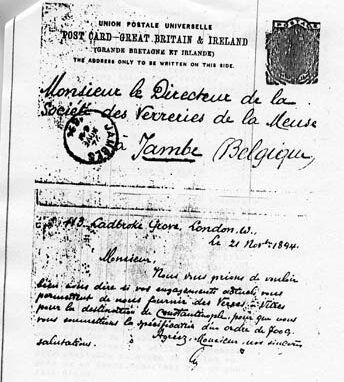 UNION POSTALE UNIVERSELLE
POST CARD-GREAT BRITAIN & IRELAND
(GRANDE BRETAGNE ET IRLANDE)
THE ADDRESS ONLY TO BE WRITTEN ON THIS SIDE.
Monsieur le Directeur de la
Société des Verreries de la Meuse
à Jambe (Belgique)
JAMBES
113, Ladbroke Grove, London, W.,
le 21 Novbr 1894.
Monsieur,
Nous vous prions de vouloir
bien nous dire si vos engagements actuels vous
permettent de nous fournir des Verres à Vitres
pour la destination de Constantinople, pour que nous
vous soumettions la spécification d'un ordre de
Agréez, Monsieur, nos sincères
salutations.